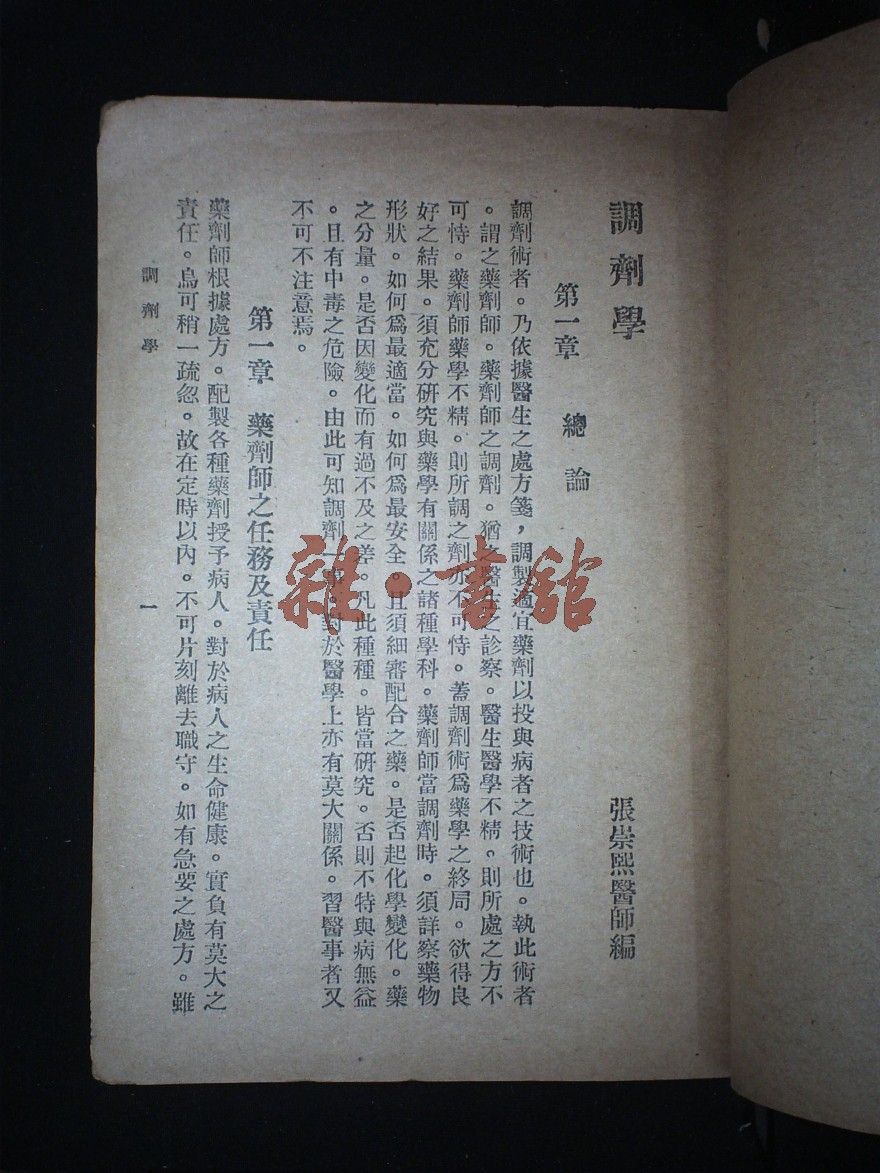 調劑學
張崇熙醫師編
第一章　總論
調劑術者。乃依據醫生之處方箋，調製適宜藥劑以投與病者之技術也。執此術者
。謂之藥劑師。藥劑師之調劑。猶之醫生之診察。醫生醫學不精。則所處之方不
可恃。藥劑師藥學不精。則所調之劑亦不可恃。蓋調劑術爲藥學之終局。欲得良
好之結果。須充分研究與藥學有關係之諸種學科。藥劑師當調劑時。須詳察藥物
形狀。如何爲最適當。如何爲最安全。且須細審配合之藥。是否起化學變化。藥
之分量。是否因變化而有過不及之差。凡此種種。皆當研究。否則不特與病無益
。且有中毒之危險。由此可知調劑一事。對於醫學上亦有莫大關係。習醫事者又
不可不注意焉。
第一章　藥劑師之任務及責任
藥劑師根據處方。配製各種藥劑授予病人。對於病人之生命健康。實負有莫大之
責任。烏可稍一疏忽。故在定時以內。不可片刻離去職守。如有急要之處方。雖
調劑學
一
雜·書館